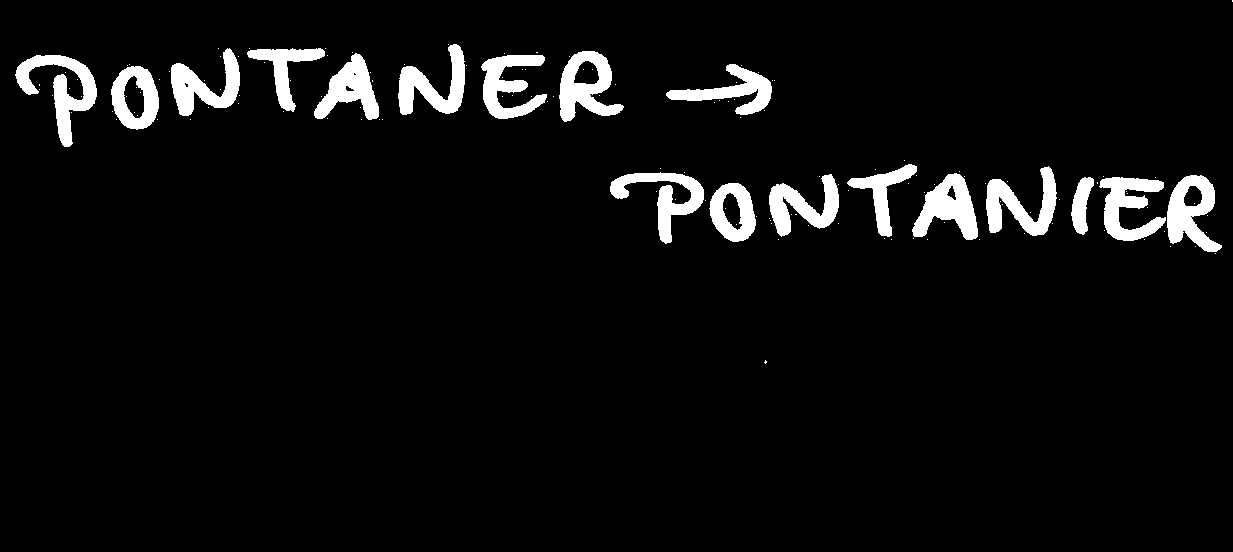 PONTANER →
PONTANIER